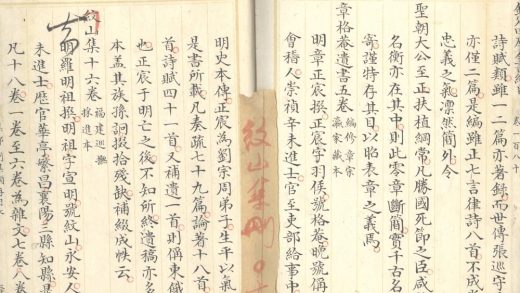 卷一百八十
詩賦雖一二篇亦著錄而世傳張巡守
亦僅二篇是編雖正七言律詩八首不成
忠義之氣凜然簡外今
聖朝大公至正扶植綱常凡勝國死節之臣咸
名衡亦在其中則此零章斷簡實千古名
寄謹特存其目以昭表章之義焉
章格菴遺書五卷 編修章宗瀛家藏本
明章正宸撰正宸字羽侯號格菴晚號偁
會稽人崇禎辛未進士官至吏部給事中
紋山集刪
明史本傳正宸為劉宗周弟子生平以氣
是書所載凡奏疏七十九篇論著十八首
首詩賦四十一首又補遺一首則偁東餓
也正宸于明亡之後不知所終遺稿亦名
本蓋其族孫詷掇拾殘缺補綴成帙云
紋山集十六卷 福建巡撫採進本
明羅明祖撰明祖字宣明號紋山永安人
未進士歷官華亭繁昌襄陽三縣知縣是
凡十八卷一卷至六卷為雜文七卷八卷